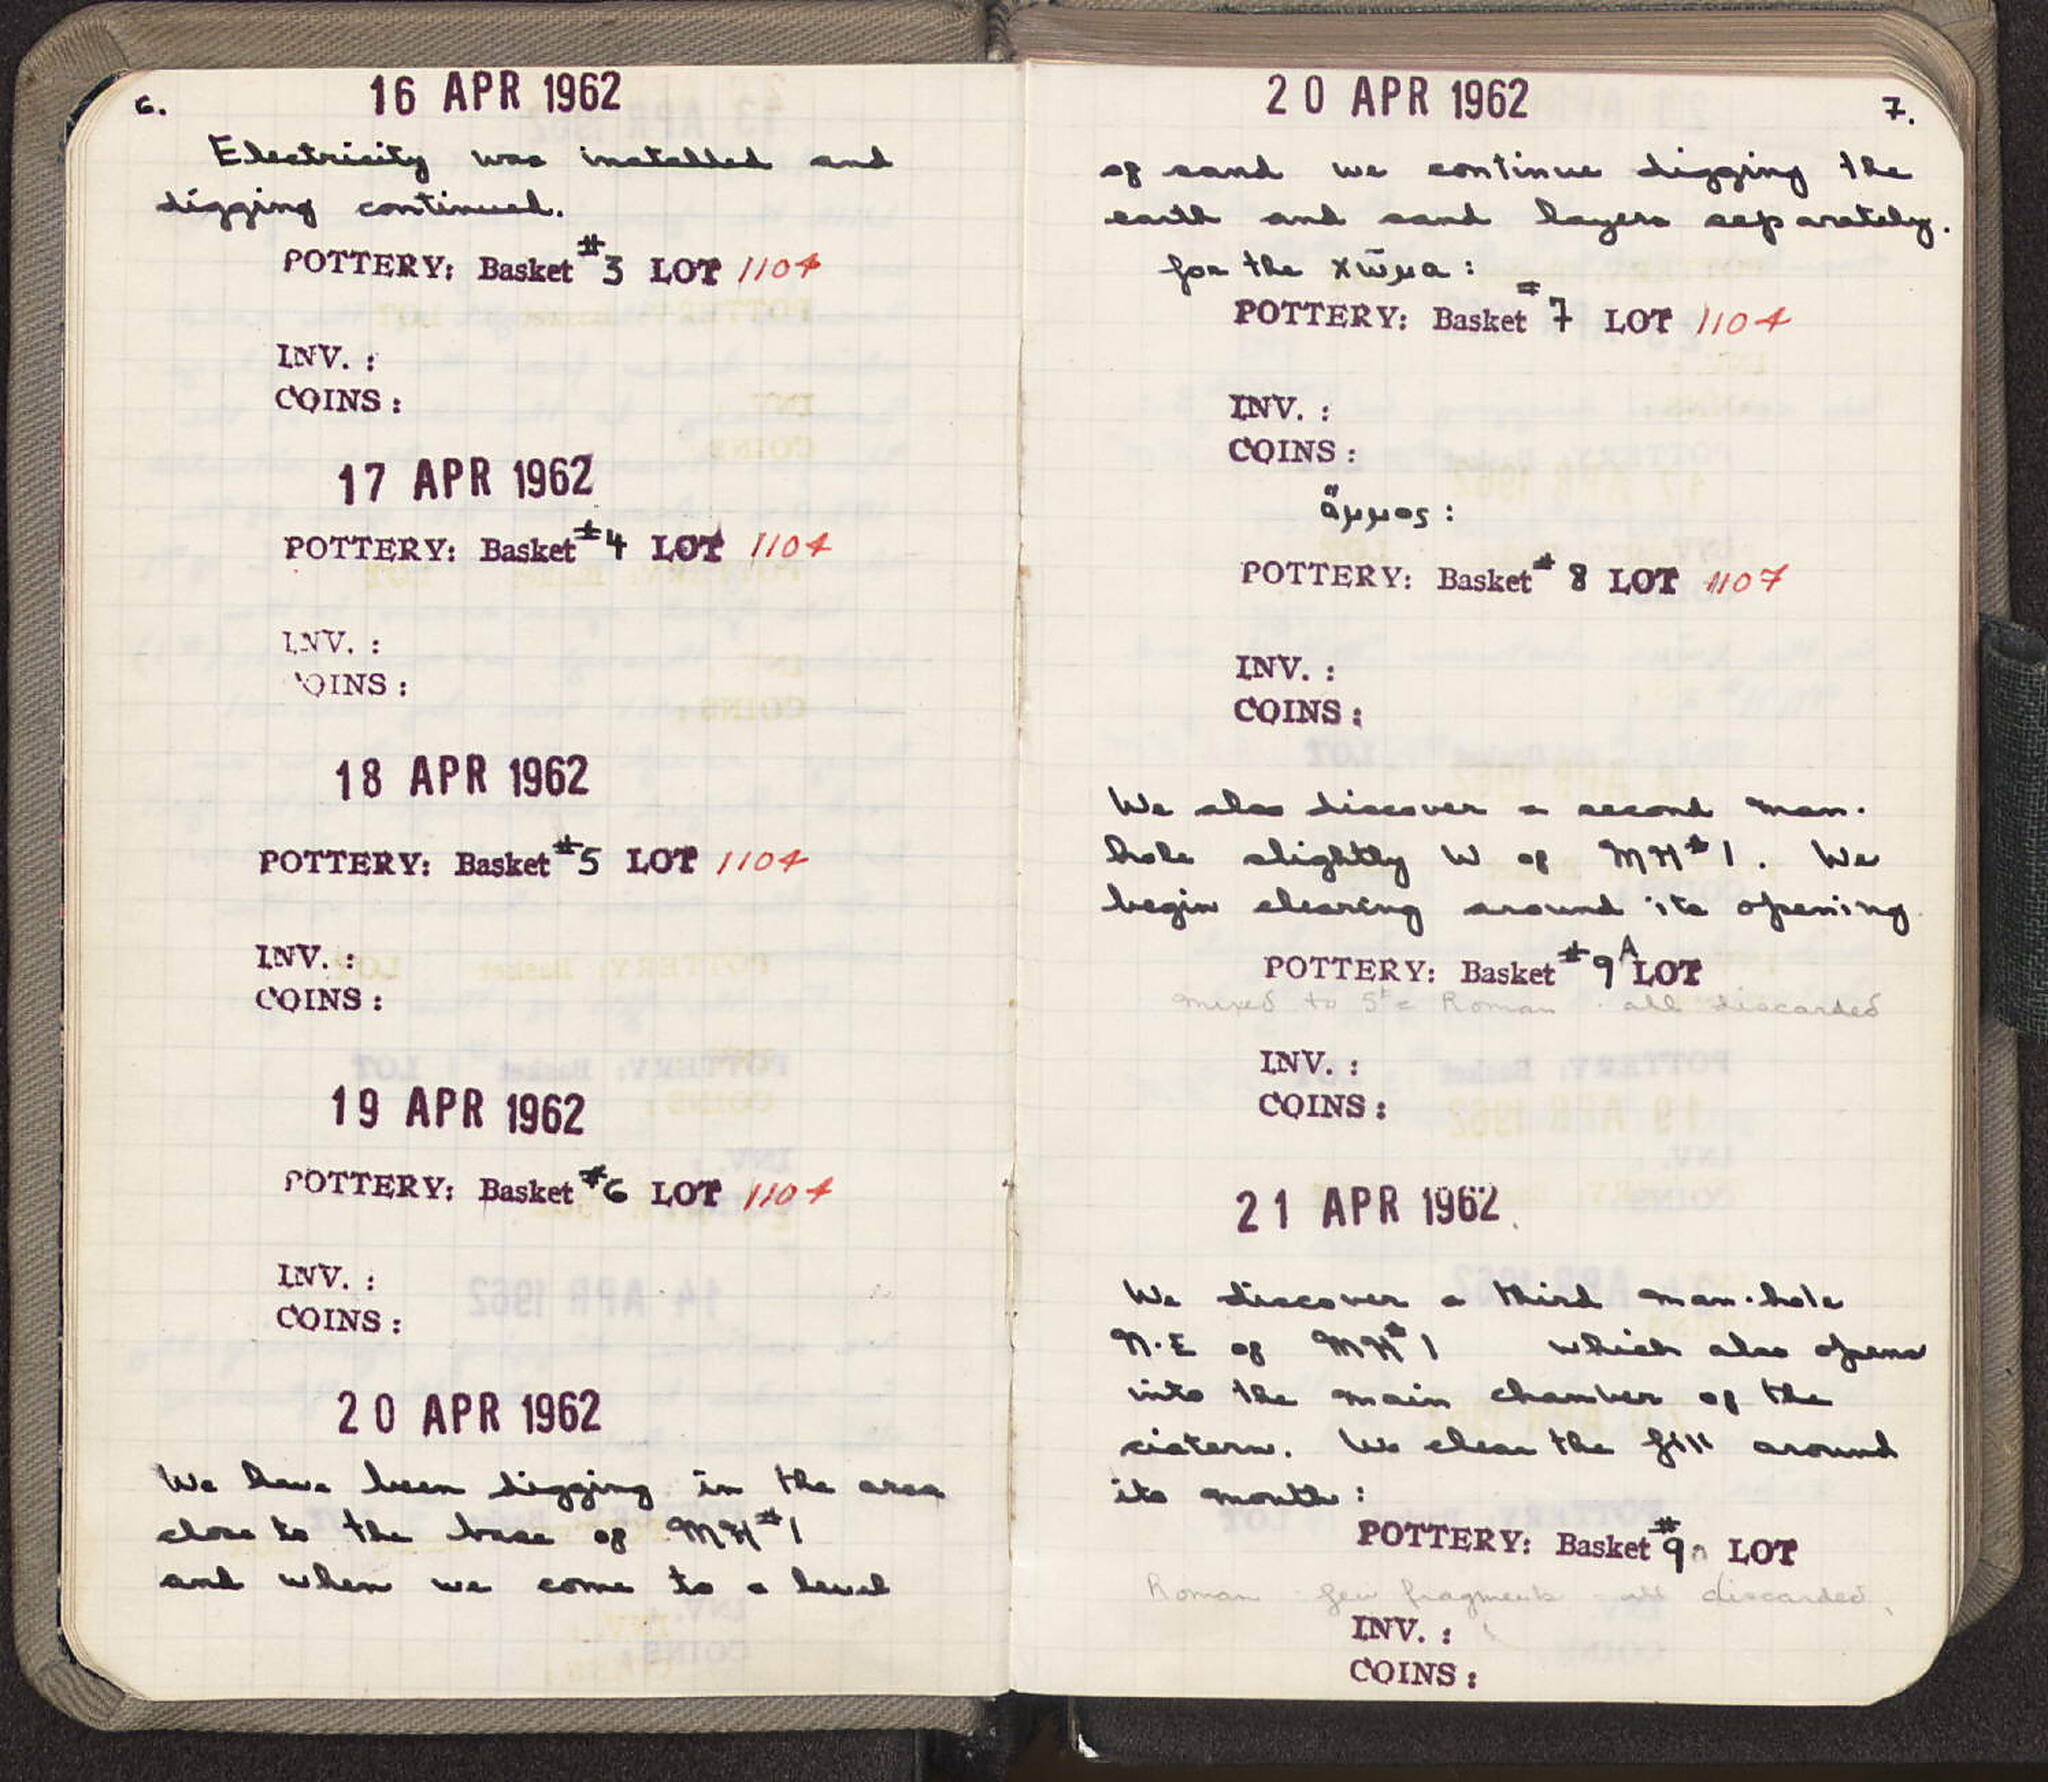 6.
16 APR 1962
Electricity was installed and
digging continued.
POTTERY: Basket #3 LOT 1104
INV. :
COINS :
17 APR 1962
POTTERY: Basket #4 LOT 1104
INV. :
COINS :
18 APR 1962
POTTERY: Basket #5 LOT 1104
INV. :
COINS :
19 APR 1962
POTTERY: Basket #6 LOT 1104
INV. :
COINS :
20 APR 1962
We have been digging in the area
close to the base of MH#1
and when we come to a level
20 APR 1962
7.
of sand we continue digging the
earth and sand layers separately.
for the χῶμα :
POTTERY: Basket #7 LOT 1104
INV. :
COINS :
ἄμμος :
POTTERY: Basket #8 LOT 1107
INV. :
COINS :
We also discover a second man-
hole slightly W of MH#1. We
begin clearing around its opening
POTTERY: Basket #9A LOT
mixed to 5th c Roman - all discarded
INV. :
COINS :
21 APR 1962
We discover a third man-hole
N.E of MH#1 which also opens
into the main chamber of the
cistern. We clear the fill around
its mouth :
POTTERY: Basket #9 LOT
Roman - few fragments - all discarded.
INV. :
COINS :